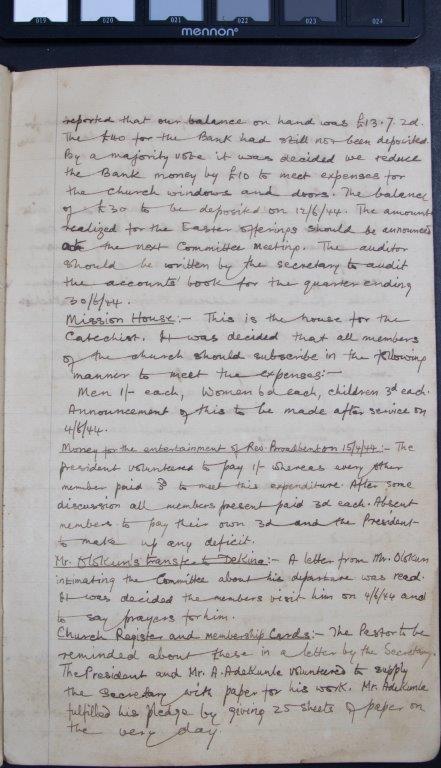 019 020 021 022 023 024
mennon
reported that our balance on hand was £13.7.2d.
The £40 for the Bank had still not been deposited.
By a majority vote it was decided we reduce
the Bank money by £10 to meet expenses for
the church windows and doors. The balance
of £30 to be deposited on 12/6/44. The amount
realized for the Easter offerings should be announced
at the next Committee Meeting. The auditor
should be written by the secretary to audit
the accounts book for the quarter ending
30/6/44.
Mission House:- This is the house for the
Catechist. It was decided that all members
of the church should subscribe in the following
manner to meet the expenses:-
Men 1/- each, Women 6d each, children 3d each.
Announcement of this to be made after service on
4/6/44.
Money for the entertainment of Rev Broadbent on 15/4/44:- The
president volunteered to pay 1/- whereas every other
member paid 3d to meet this expenditure. After some
discussion all members present paid 3d each. Absent
members to pay their own 3d and the President
to make up any deficit.
Mr. Olokun's transfer to Dekina:- A letter from Mr. Olokun
intimating the Committee about his departure was read.
It was decided the members visit him on 4/6/44 and
to say prayers for him.
Church Register and membership Cards:- The Pastor to be
reminded about these in a letter by the Secretary.
The President and Mr. A. Adekunle volunteered to supply
the Secretary with paper for his work. Mr. Adekunle
fulfilled his pledge by giving 25 sheets of paper on
the very day.